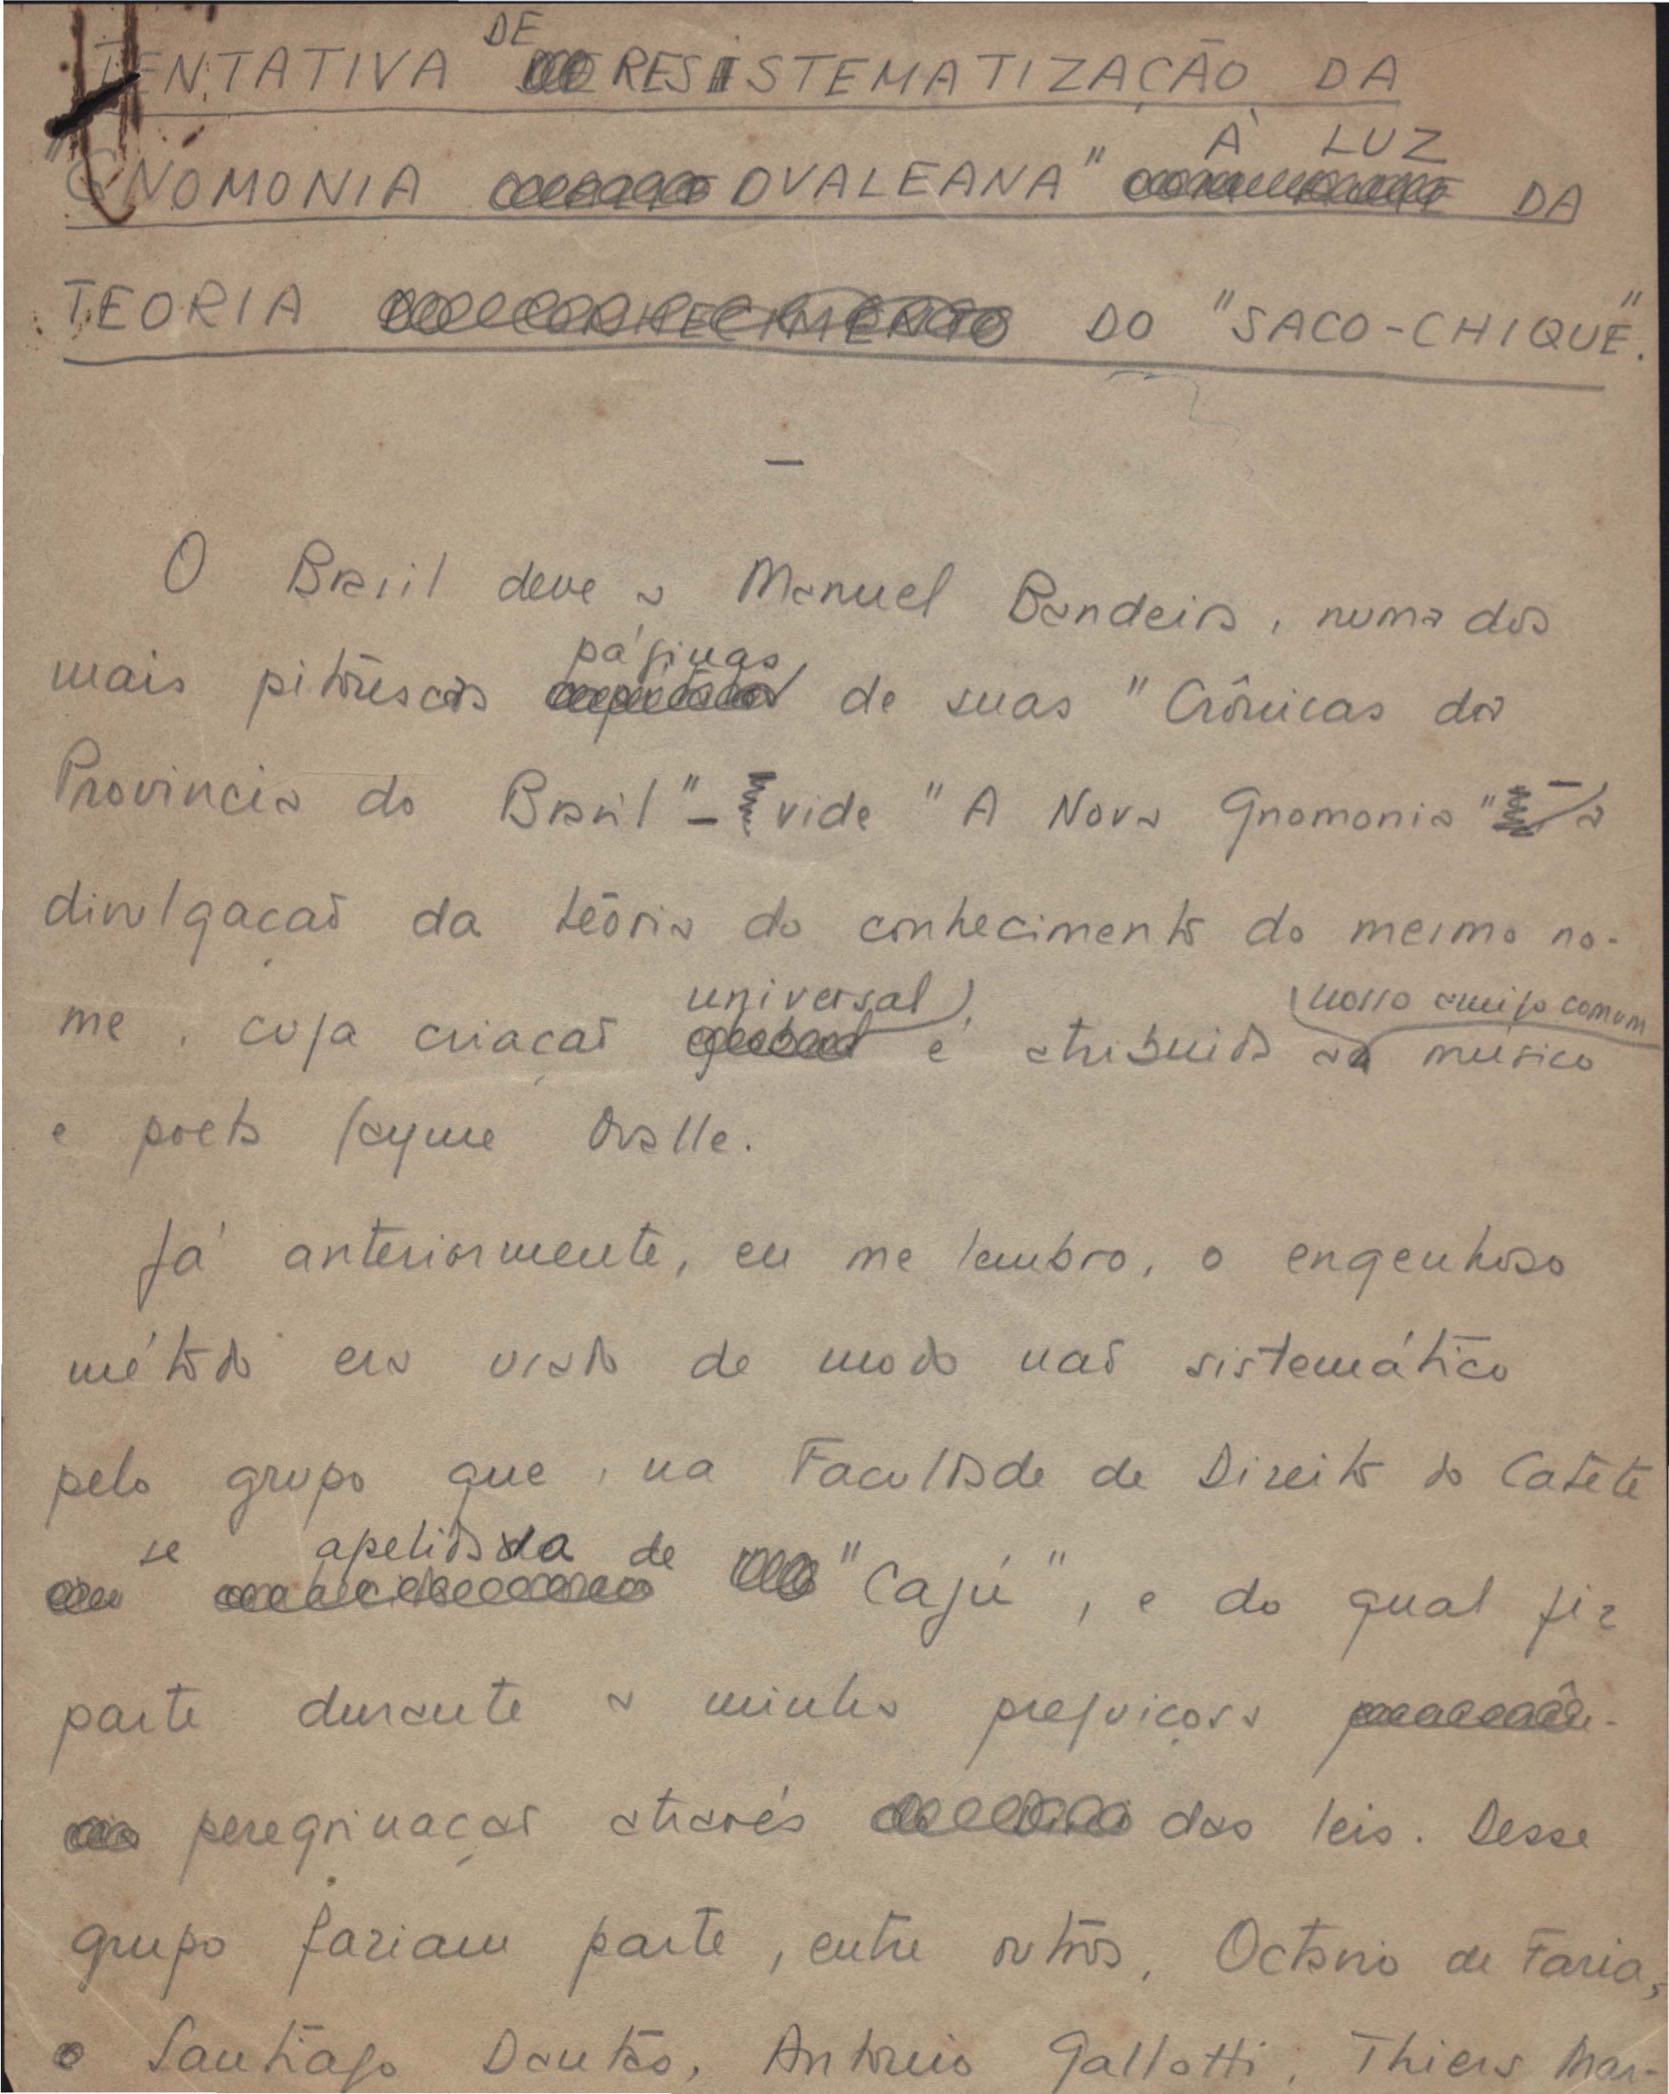 TENTATIVA DE RESISTEMATIZAÇÃO DA
"GNOMONIA OVALEANA" À LUZ DA
TEORIA DO "SACO-CHIQUE".
—
O Brasil deve a Manuel Bandeira, numa das
mais pitorescas páginas de suas "Crônicas da
Provincia do Brasil" – vide "A Nova Gnomonia" – a
divulgação da teoria do conhecimento do mesmo no-
me, cuja criação universal é atribuida ao nosso amigo comum músico
e poeta Jayme Ovalle.
Já anteriormente, eu me lembro, o engenhoso
método era usado de modo não sistemático
pelo grupo que, na Faculdade de Direito do Catete
se apelidava de "Cajú", e do qual fiz
parte durante a minha preguiçosa
peregrinação através das leis. Desse
grupo faziam parte, entre outros, Octavio de Faria,
Santiago Dantas, Antonio Gallotti, Thiers Mar-